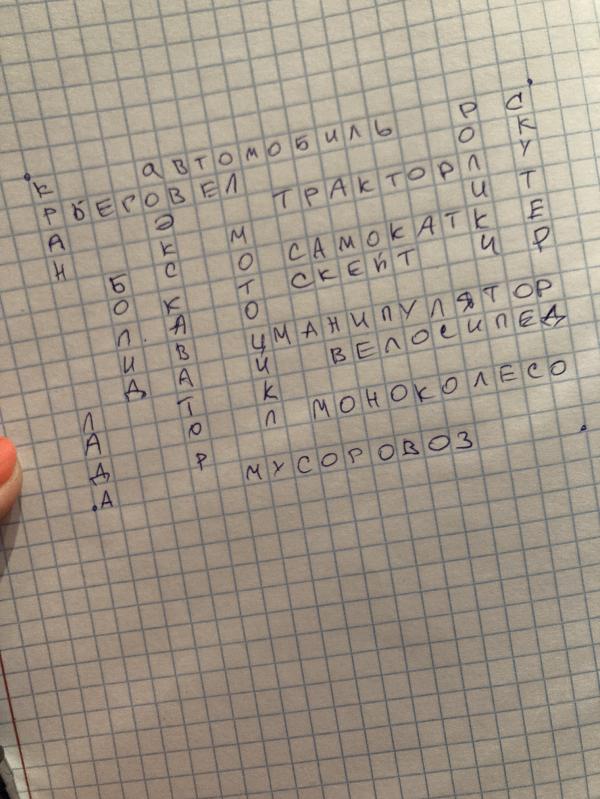 СКУТЕР
РОЛИКИ
АВТОМОБИЛЬ
КРАН
БЕГОВЕЛ
ТРАКТОР
ЭКСКАВАТОР
МОТОЦИКЛ
САМОКАТ
СКЕЙТ
БОЛИД
МАНИПУЛЯТОР
ВЕЛОСИПЕД
ЛАДА
МОНОКОЛЕСО
МУСОРОВОЗ